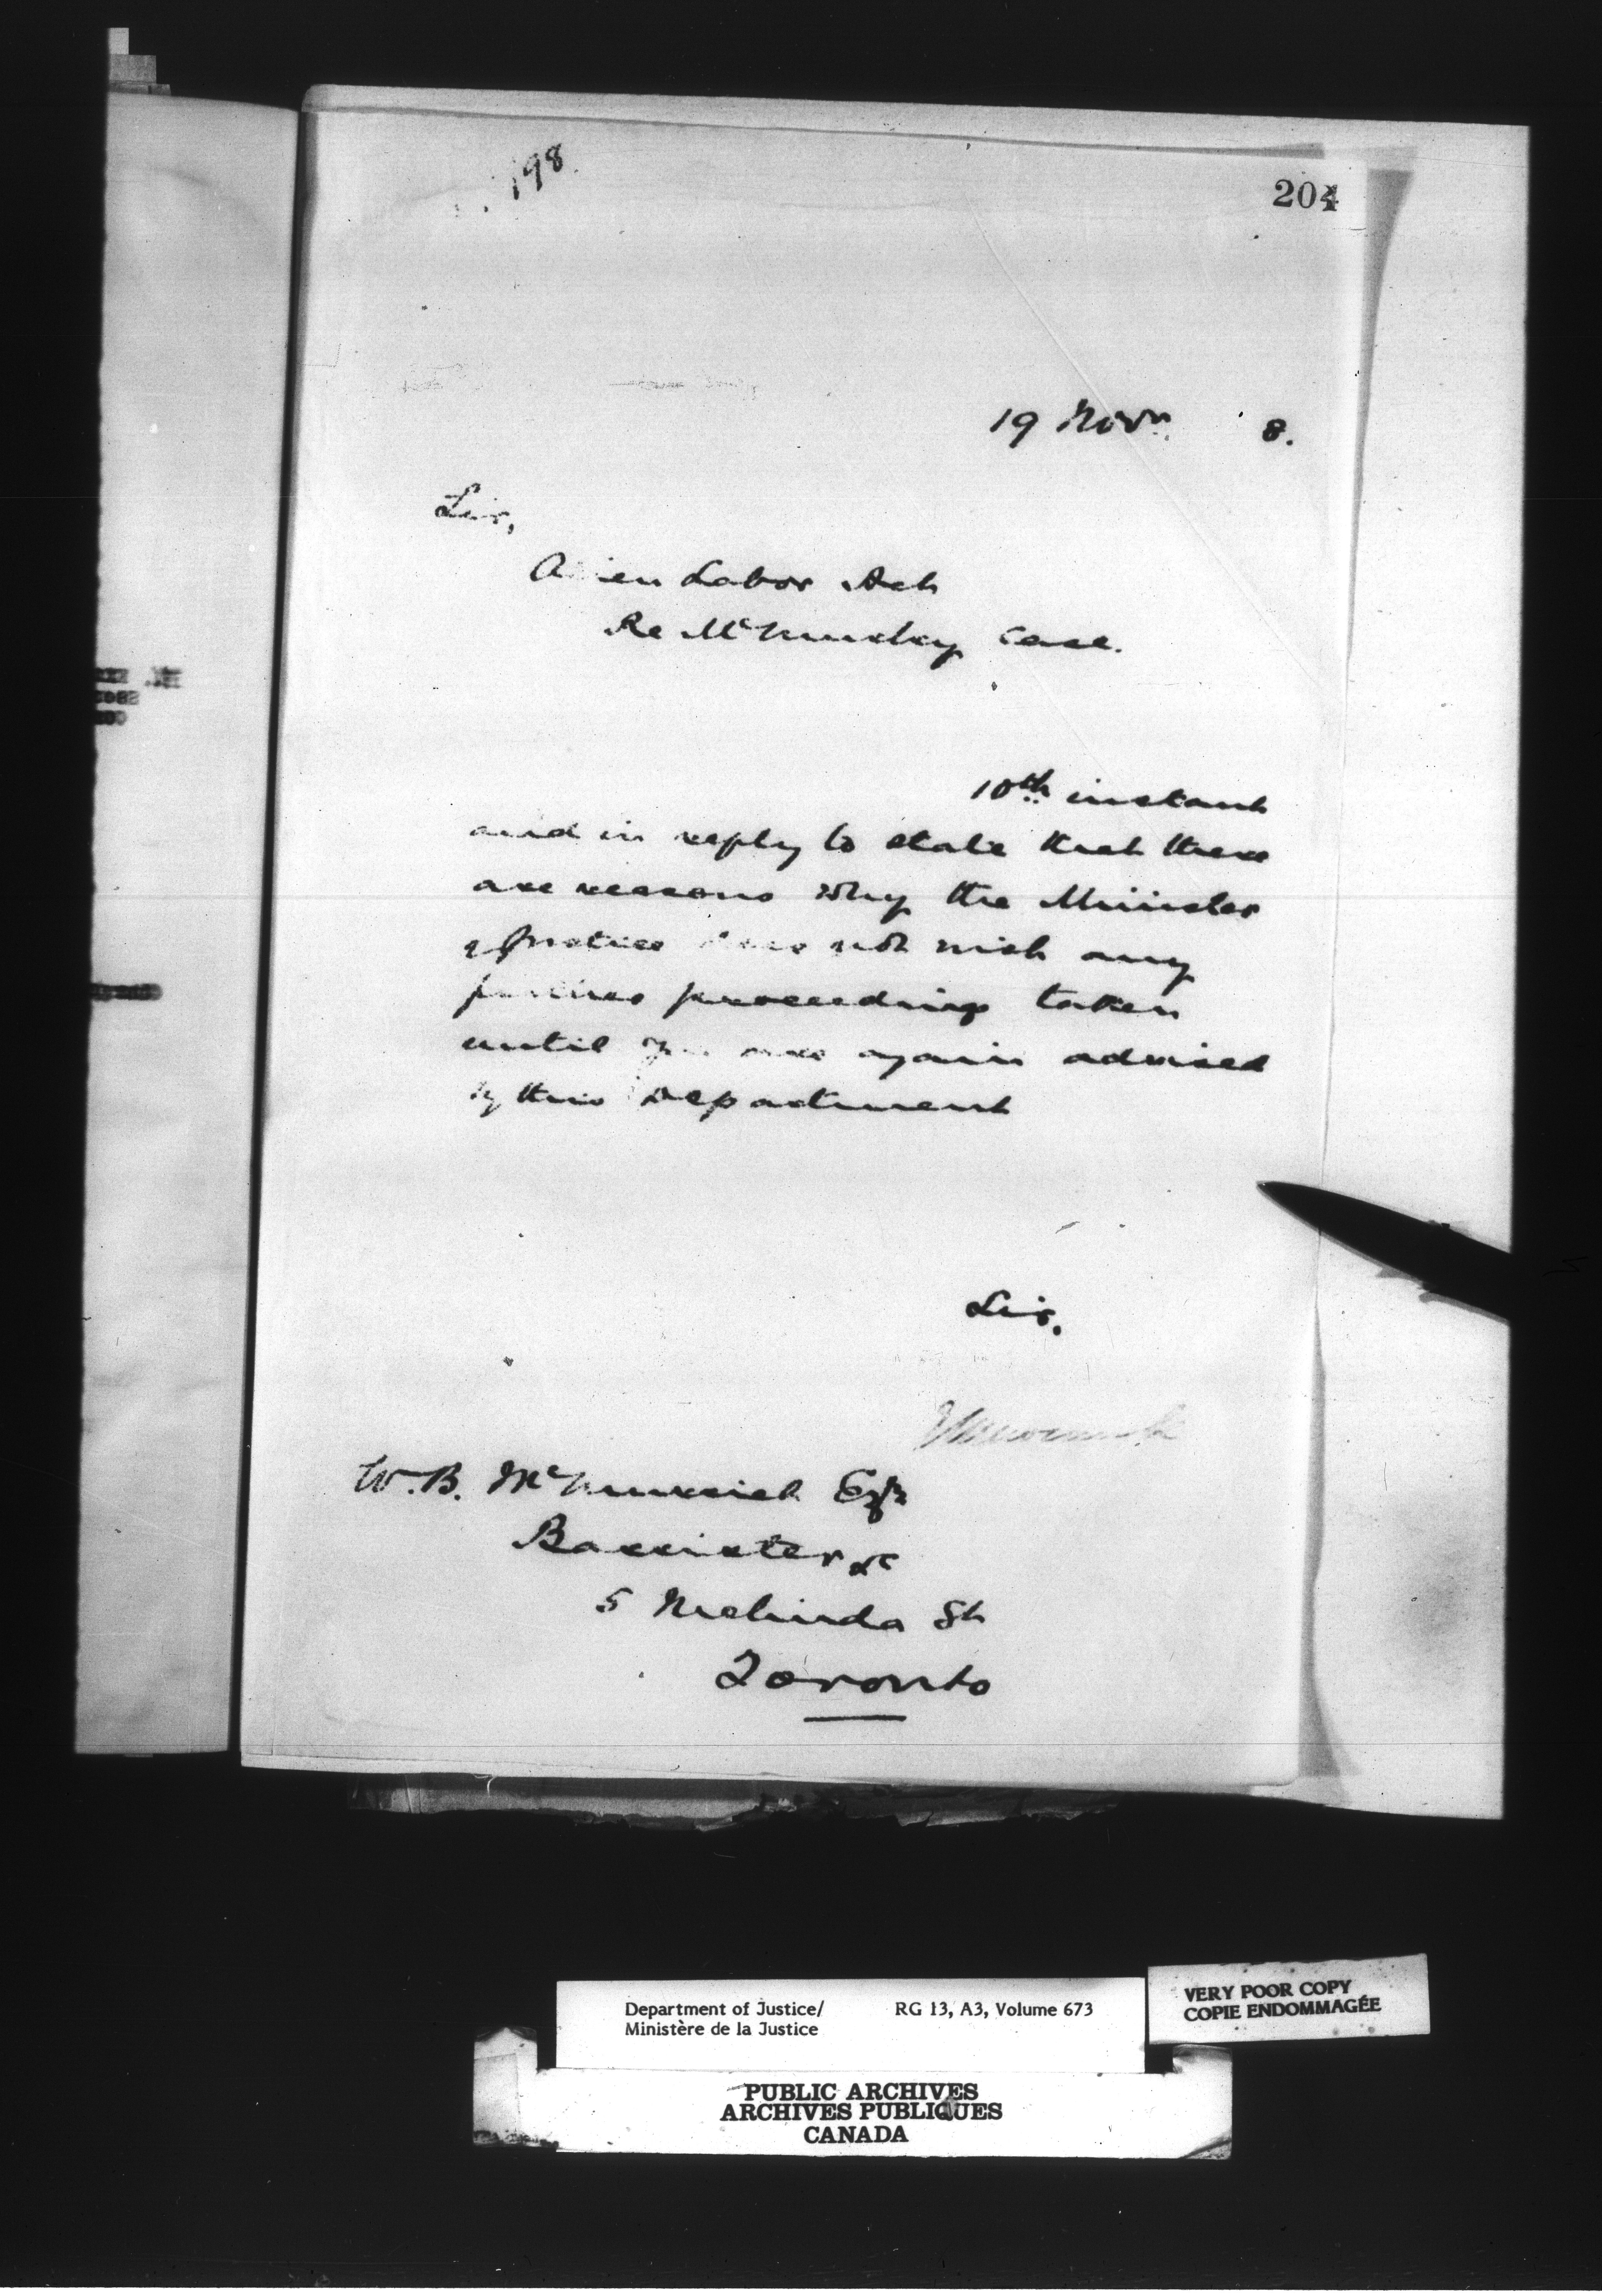 198.
204
19 Novr. 8.
Sir,
Alien Labor Act
Re Case.
10th instant
and in reply to state that there
are reasons why the Minister
of Justice does not wish any
further proceedings taken
until you are again advised
by this Department
Sir,
W. B. McMurrich Esqr
Barrister &c
5 Melinda St
Toronto
Department of Justice/
Ministère de la Justice
RG 13, A3, Volume 673
VERY POOR COPY
COPIE ENDOMMAGÉE
PUBLIC ARCHIVES
ARCHIVES PUBLIQUES
CANADA